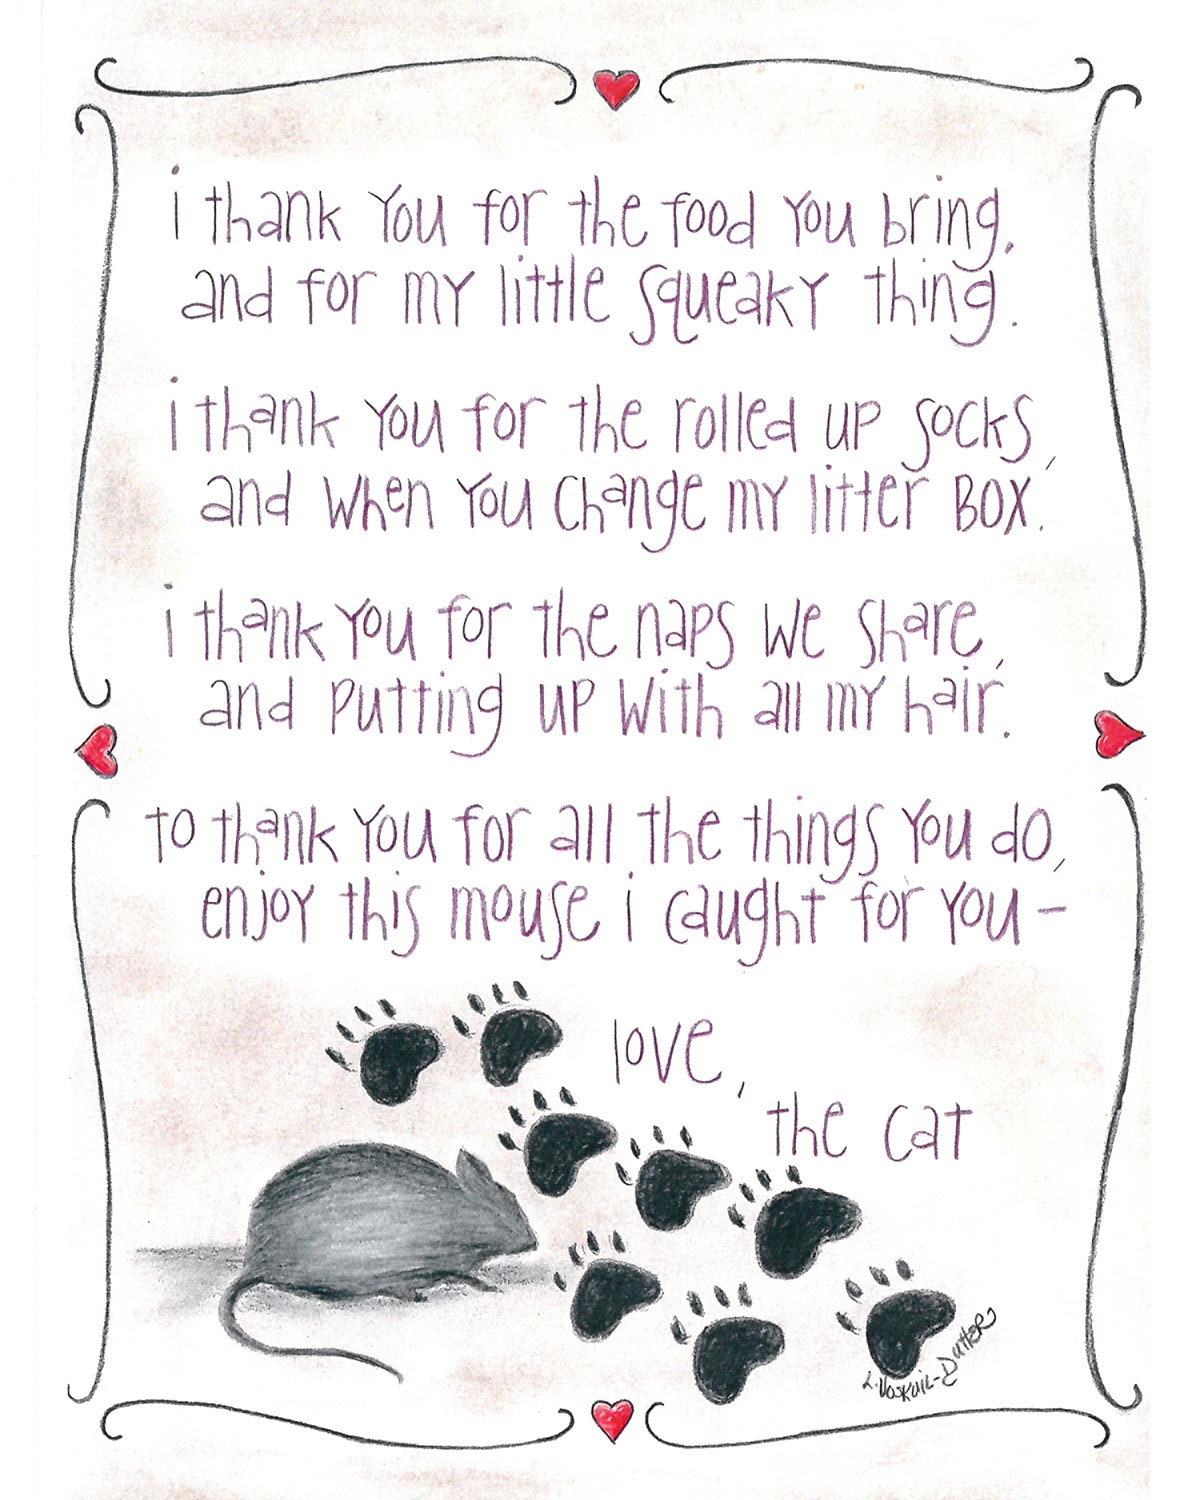 i thank You for the food You bring,
and for my little squeaky thing.
i thank You for the rolled up socks,
and when you change my litter Box.
i thank You for the naps we share,
and putting up with all my hair.
to thank You for all the things You do,
enjoy this mouse i caught for you –
love,
the cat
L. Voskuil-Dutter